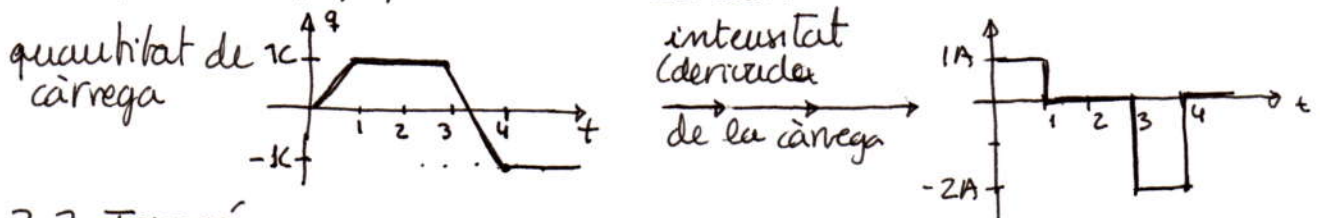 quantitat de
càrrega
q
1C
1 2 3 4 t
-1C
intensitat
(derivada
de la càrrega
1A
1 2 3 4 t
-2A